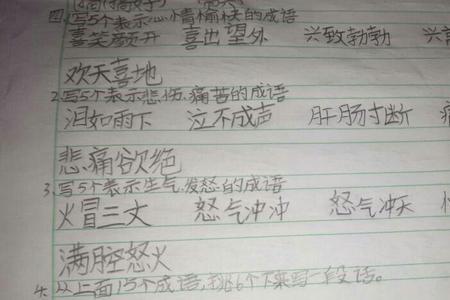 四.写5个表示心情愉快的成语
喜笑颜开 喜出望外 兴致勃勃 兴
欢天喜地
2.写5个表示悲伤、痛苦的成语
泪如雨下 泣不成声 肝肠寸断
悲痛欲绝
3.写5个表示生气、发怒的成语
火冒三丈 怒气冲冲 怒气冲天
满腔怒火
4.从上面15个成语,挑6个下来写一段话。